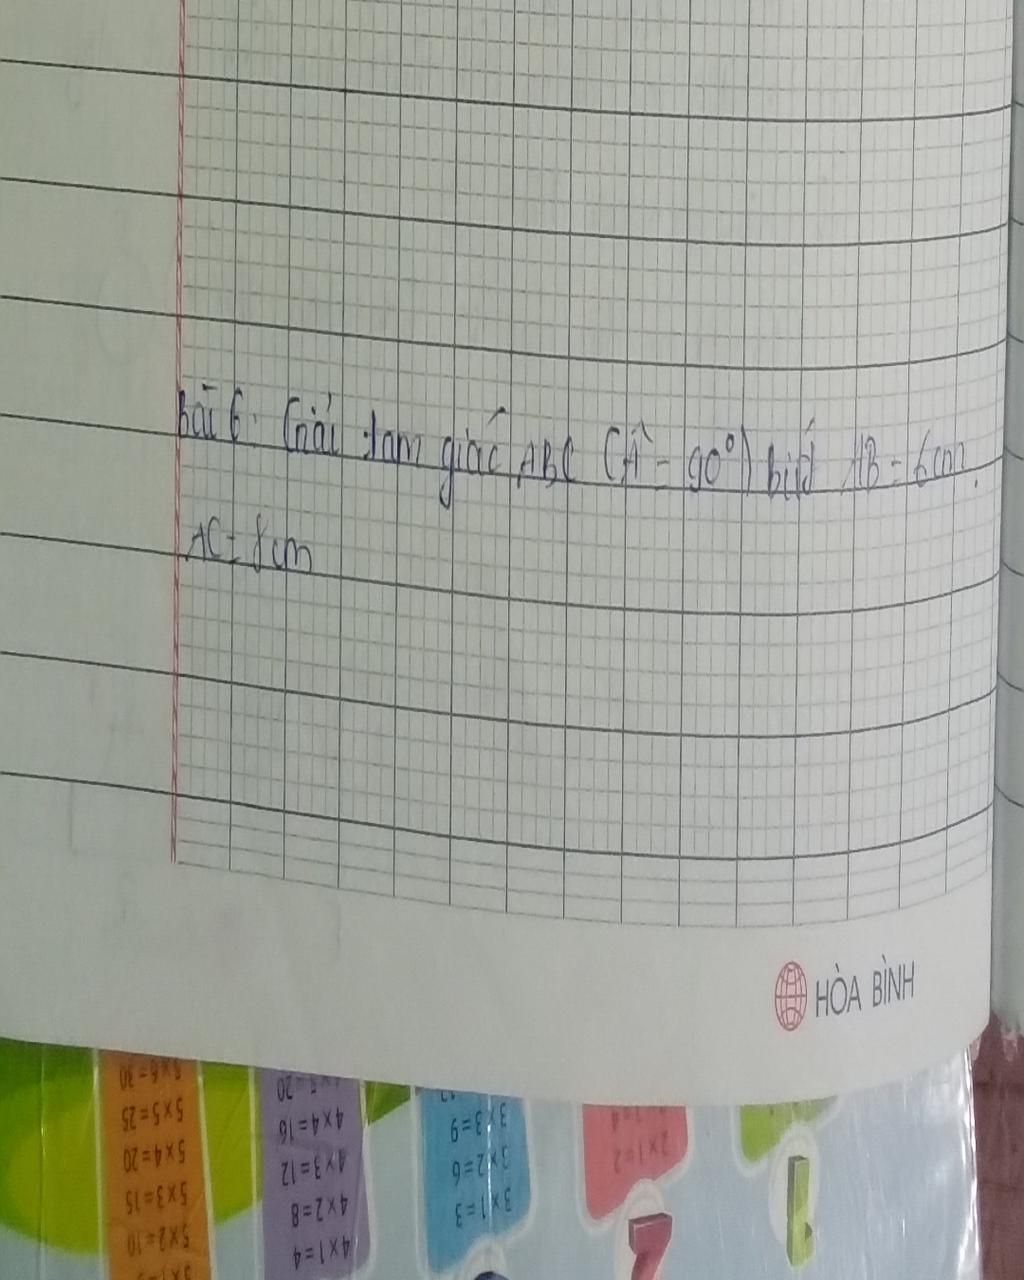 Bài 6: Giải tam giác ABC (Â = 90°) biết AB = 6cm,
AC = 8cm
HÒA BÌNH
5 x 6 = 30
5 x 5 = 25
5 x 4 = 20
5 x 3 = 15
5 x 2 = 10
4 x 5 = 20
4 x 4 = 16
4 x 3 = 12
4 x 2 = 8
4 x 1 = 4
3 x 3 = 9
3 x 2 = 6
3 x 1 = 3
2 x 1 = 2